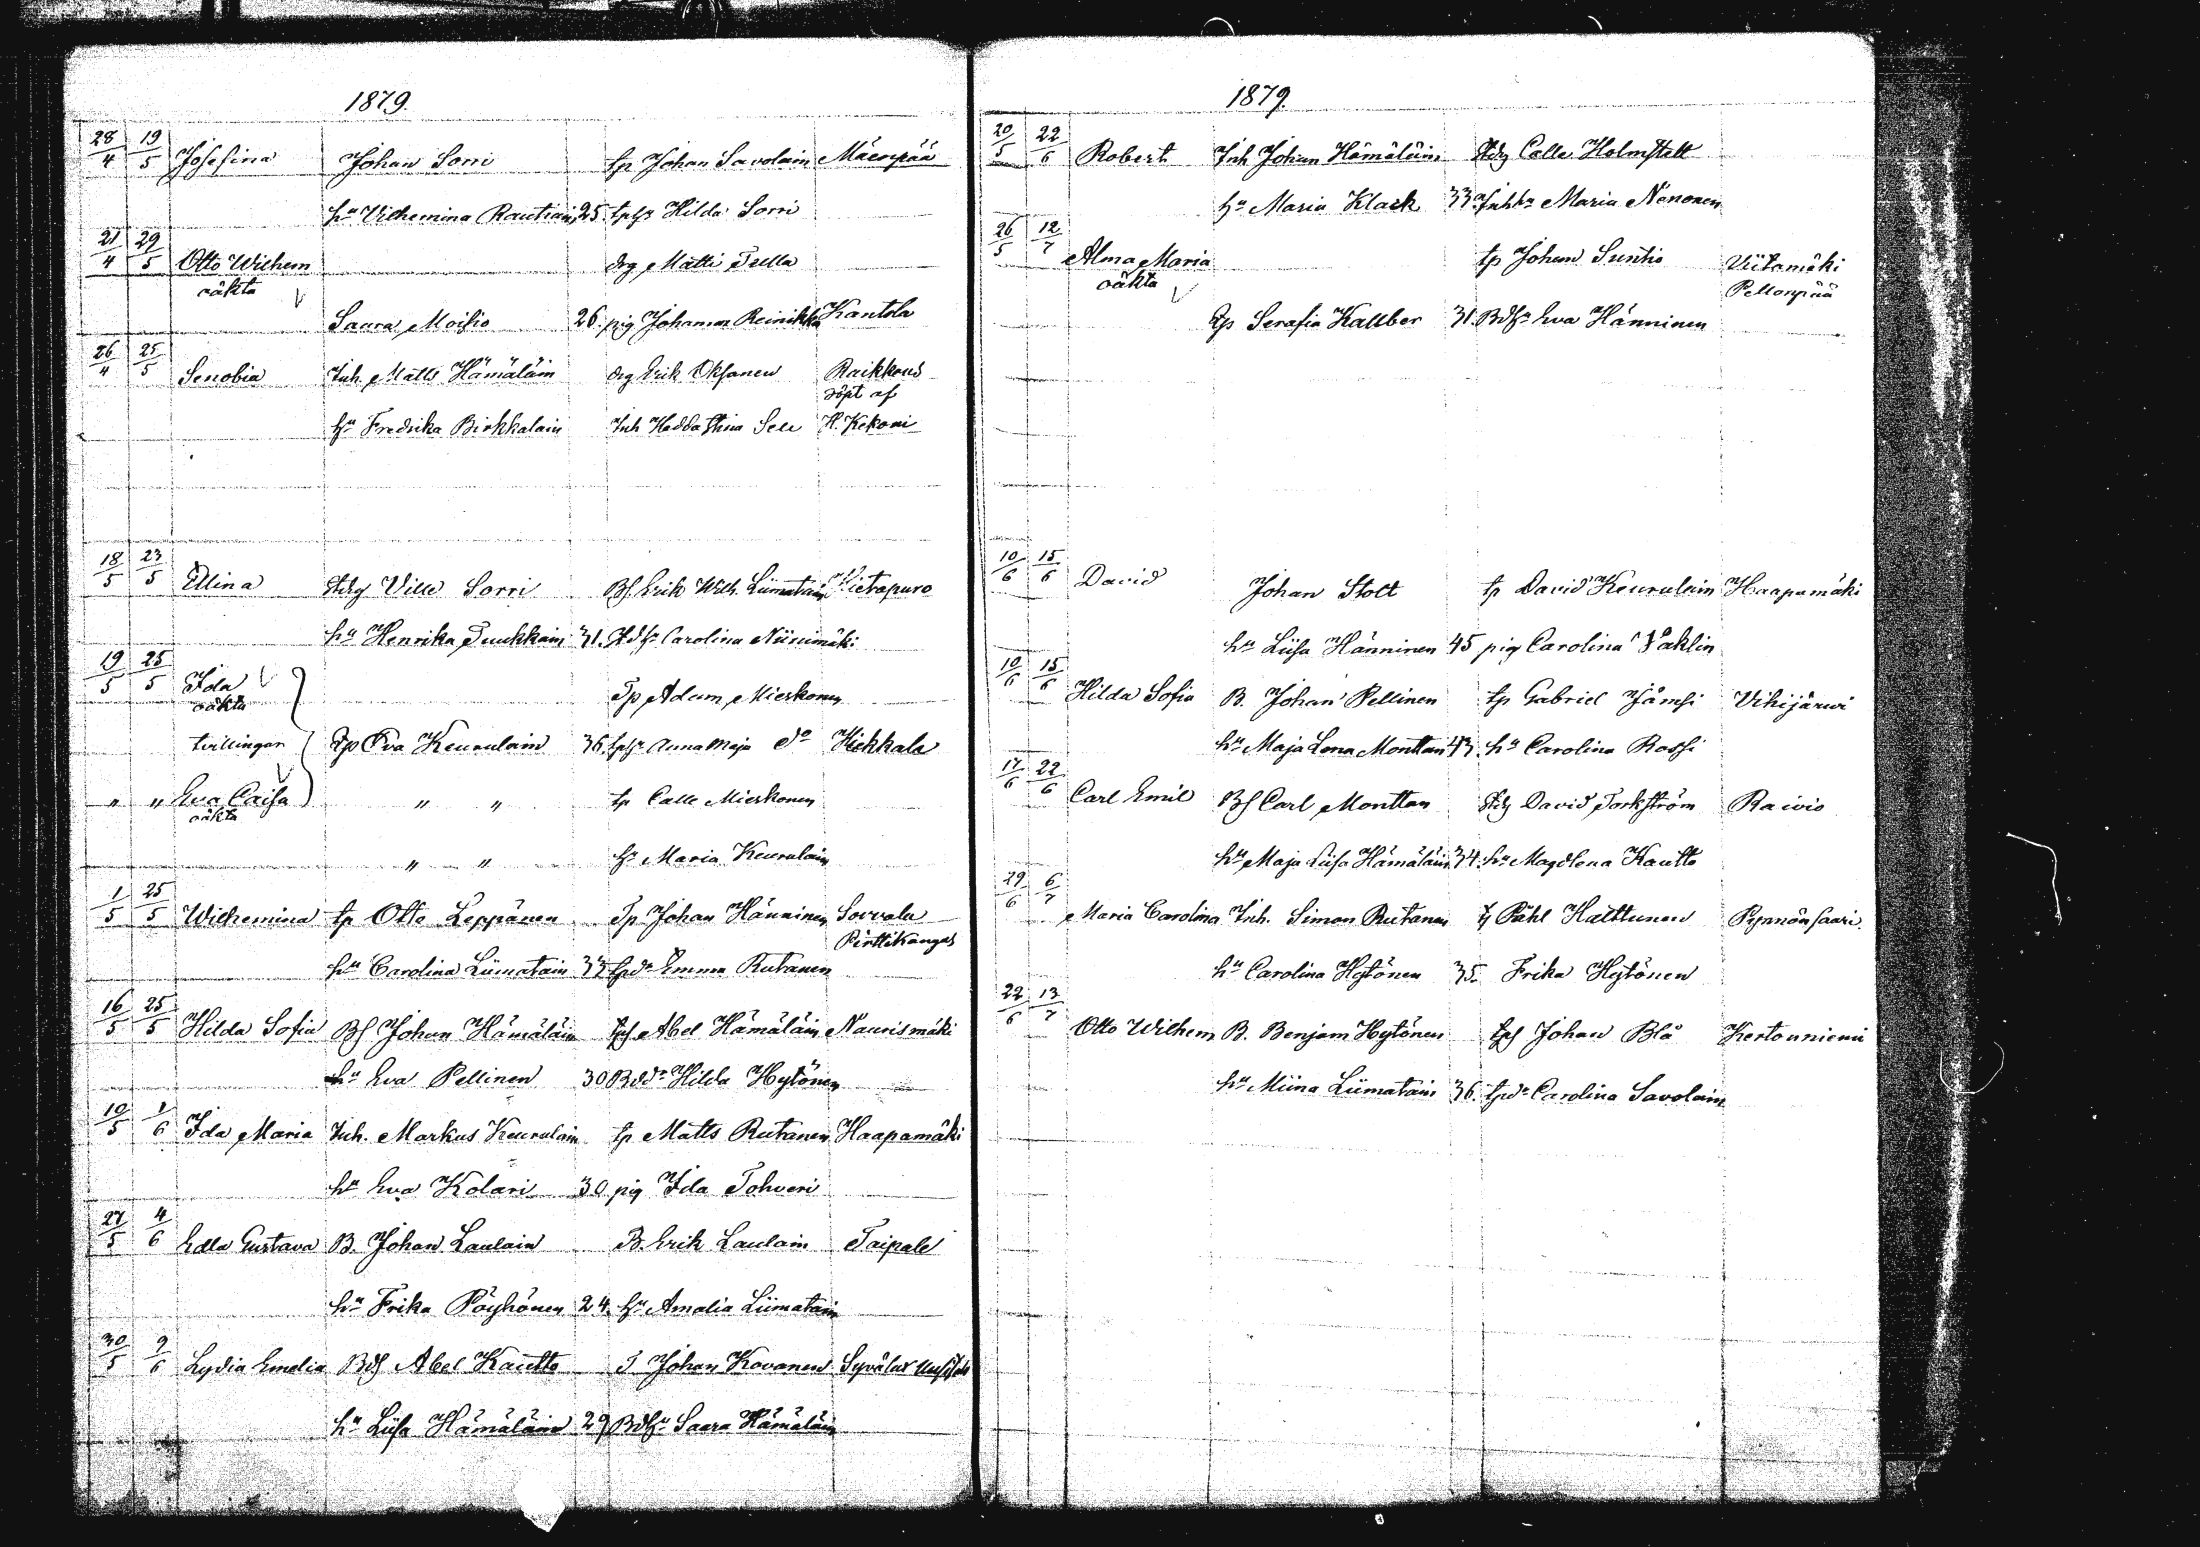 1879.
28/4 19/5 Josefina Johan Sorri tp Johan Savolain Mäenpää
hu Vilhemina Rautiain 25. tphu Hilda Sorri
21/4 29/5 Otto Wilhem drg Matti Tella
oäkta
Saara Moisio 26. pig Johanna Reinikka Kantola
26/4 25/5 Senobia Inh Matts Hämäläin drg Erik Oksanen Raikkous
döpt af
hu Fredrika Birkkalain Inh Hedda Stina Sele H. Kekoni
18/5 23/5 Ellina Stdg Ville Sorri Bf Erik Wilh. Liimatain Vietapuro
hu Henrika Tuukkain 31. Carolina Niinimäki
19/5 25/5 Ida Tp Adam Mieskonen
oäkta
tvillingar Eva Keurulain 36. tphu Anna Maja do Hiekkala
" " Eva Caisa " " tp Calle Mieskonen
oäkta
" " hu Maria Keurulain
1/5 25/5 Wilhemina tp Otto Leppänen Tp Johan Hänninen Sovvala
Pirttikangas
hu Carolina Liimatain 33 tpdr Emma Rutanen
16/5 25/5 Hilda Sofia Bf Johan Hämäläin Abel Hämäläin Naurismäki
hu Eva Pellinen 30 Bddr Hilda Hytönen
10/5 1/6 Ida Maria Inh. Markus Keurulain tp Matts Rutanen Haapamäki
hu Eva Kolari 30 pig Ida Tohveri
27/5 4/6 Edla Gustava B. Johan Laulain B. Erik Laulain Taipale
hu Frika Pöyhönen 24. hu Amalia Liimatain
30/5 9/6 Lydia Emelia Abel Kautto T Johan Kovanen
hu Liisa Hämäläin 29 Saara Hämäläin
1879.
20/5 22/6 Robert Inh Johan Hämäläin Stdg Calle Holmstett
hu Maria Klack 33. Inhhu Maria Nenonen
26/5 12/7 Alma Maria tp Johan Suntio Viitamäki
oäkta Pellonpää
Serafia Kallber 31. Eva Hänninen
10/6 15/6 David Johan Stolt tp David Keurulain Haapamäki
hu Liisa Hänninen 45 pig Carolina
10/6 15/6 Hilda Sofia B. Johan Pellinen tp Gabriel Jämsi Vihijärvi
hu Maja Lena Monttan 43. hu Carolina Rossi
17/6 22/6 Carl Emil Bf Carl Monttan Stdg David Torkström Raivio
hu Maja Liisa Hämäläin 34. hu Magdlena Kautto
29/6 6/7 Maria Carolina Inh. Simon Rutanen Påhl Halttunen Pynnönsaari
hu Carolina Hytönen 35. Frika Hytönen
22/6 13/7 Otto Wilhem B. Benjam Hytönen Johan Blå Kertunniemi
hu Miina Liimatain 36. tpdr Carolina Savolain